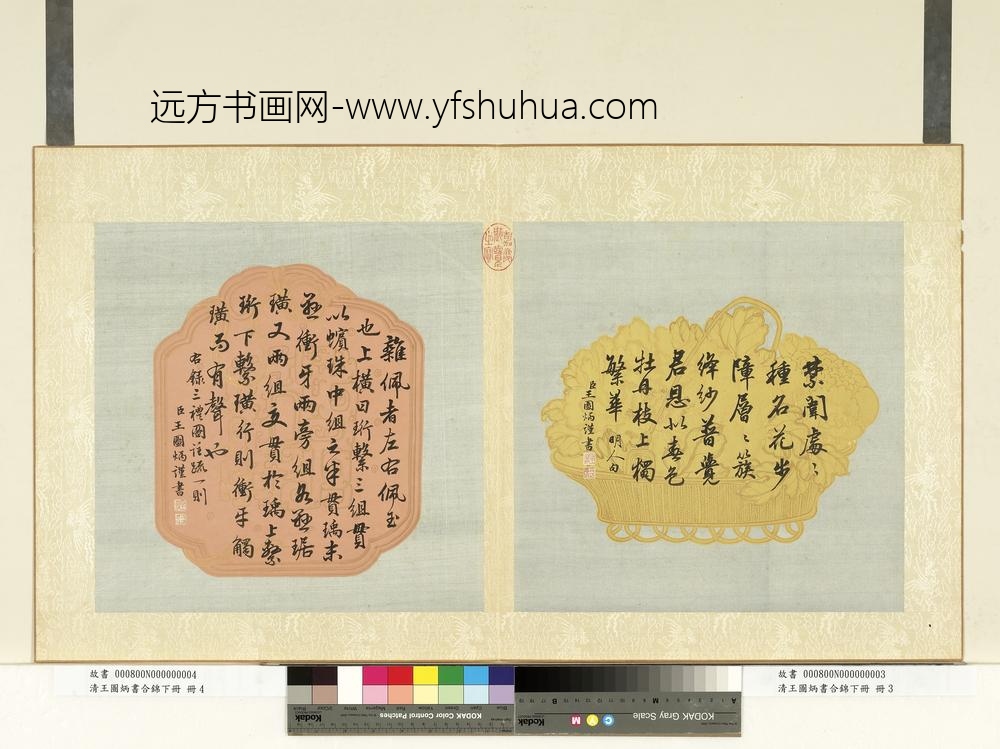 远方书画网-www.yfshuhua.com
禁闈處〻
種名花步
障層〻簇
絳紗普覺
君恩似春色
牡丹枝上獨
繁華 明人句
臣王圖炳謹書
雜佩者左右佩玉
也上橫曰珩繫三組貫
以蠙珠中組之半貫瑀末
懸衝牙兩旁組各懸琚
璜又兩組交貫於瑀上繫
珩下繫璜行則衝牙觸
璜而有聲也
右錄三禮圖註疏一則
臣王圖炳謹書
故書 000800N000000004
清王圖炳書合錦下冊 冊 4
故書 000800N000000003
清王圖炳書合錦下冊 冊 3
KODAK Color Control Patches
Kodak
Blue Cyan Green Yellow Red Magenta White 3/Color Black
KODAK Gray Scale
Kodak
C Y M